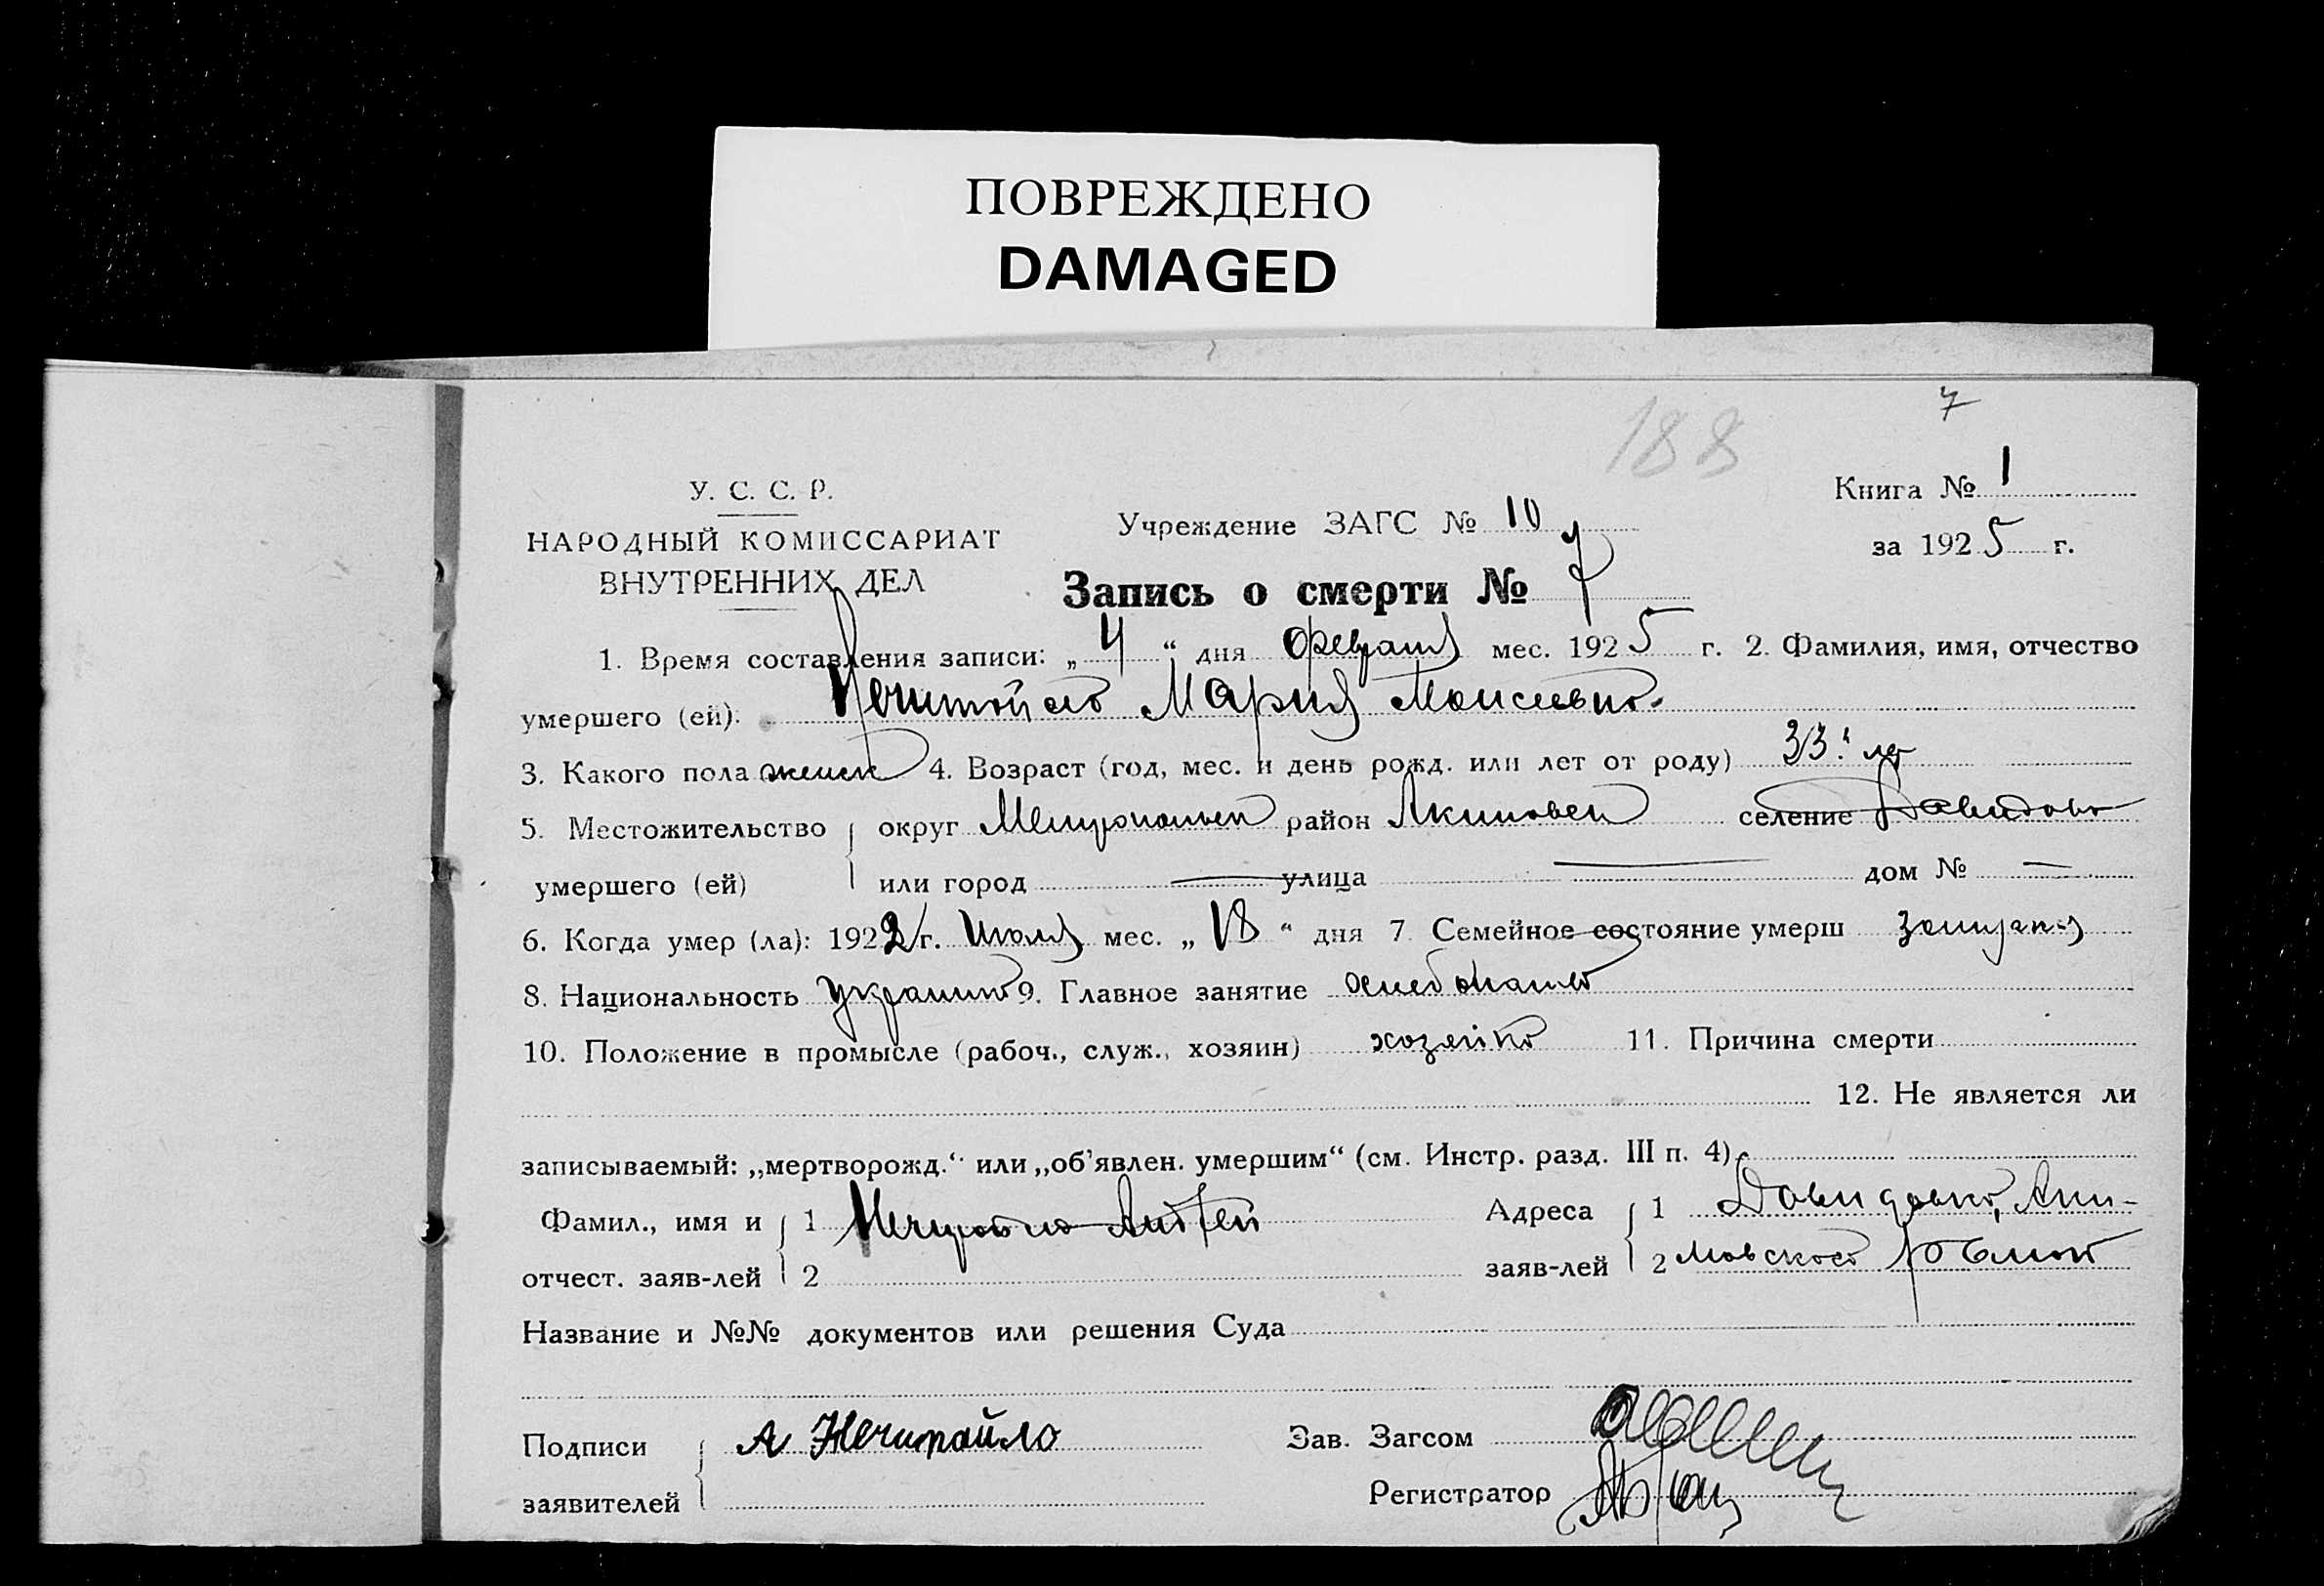 ПОВРЕЖДЕНО
DAMAGED
7
188
У. С. С. Р.
НАРОДНЫЙ КОМИССАРИАТ
ВНУТРЕННИХ ДЕЛ
Учреждение ЗАГС № 10
Книга № 1
за 1925 г.
Запись о смерти № 7
1. Время составления записи: „4“ дня февраля мес. 1925 г. 2. Фамилия, имя, отчество
умершего (ей): Нечитайло Мария Моисеевна
3. Какого пола женск 4. Возраст (год, мес. и день рожд. или лет от роду) 33 лет
5. Местожительство округ Мелитопольск район Акимовск селение Давидовка
умершего (ей) или город — улица — дом № —
6. Когда умер (ла): 1922 г. Июля мес. „18“ дня 7 Семейное состояние умерш замужняя
8. Национальность украинка 9. Главное занятие хлебопашество
10. Положение в промысле (рабоч., служ., хозяин) хозяйка 11. Причина смерти
12. Не является ли
записываемый: „мертворожд.“ или „об'явлен. умершим“ (см. Инстр. разд. III п. 4)
Фамил., имя и 1 Нечитайло Адреса 1 Давидовка, Аки-
отчест. заяв-лей 2 заяв-лей 2 мовского района
Название и №№ документов или решения Суда
Подписи А Нечитайло Зав. Загсом
заявителей Регистратор